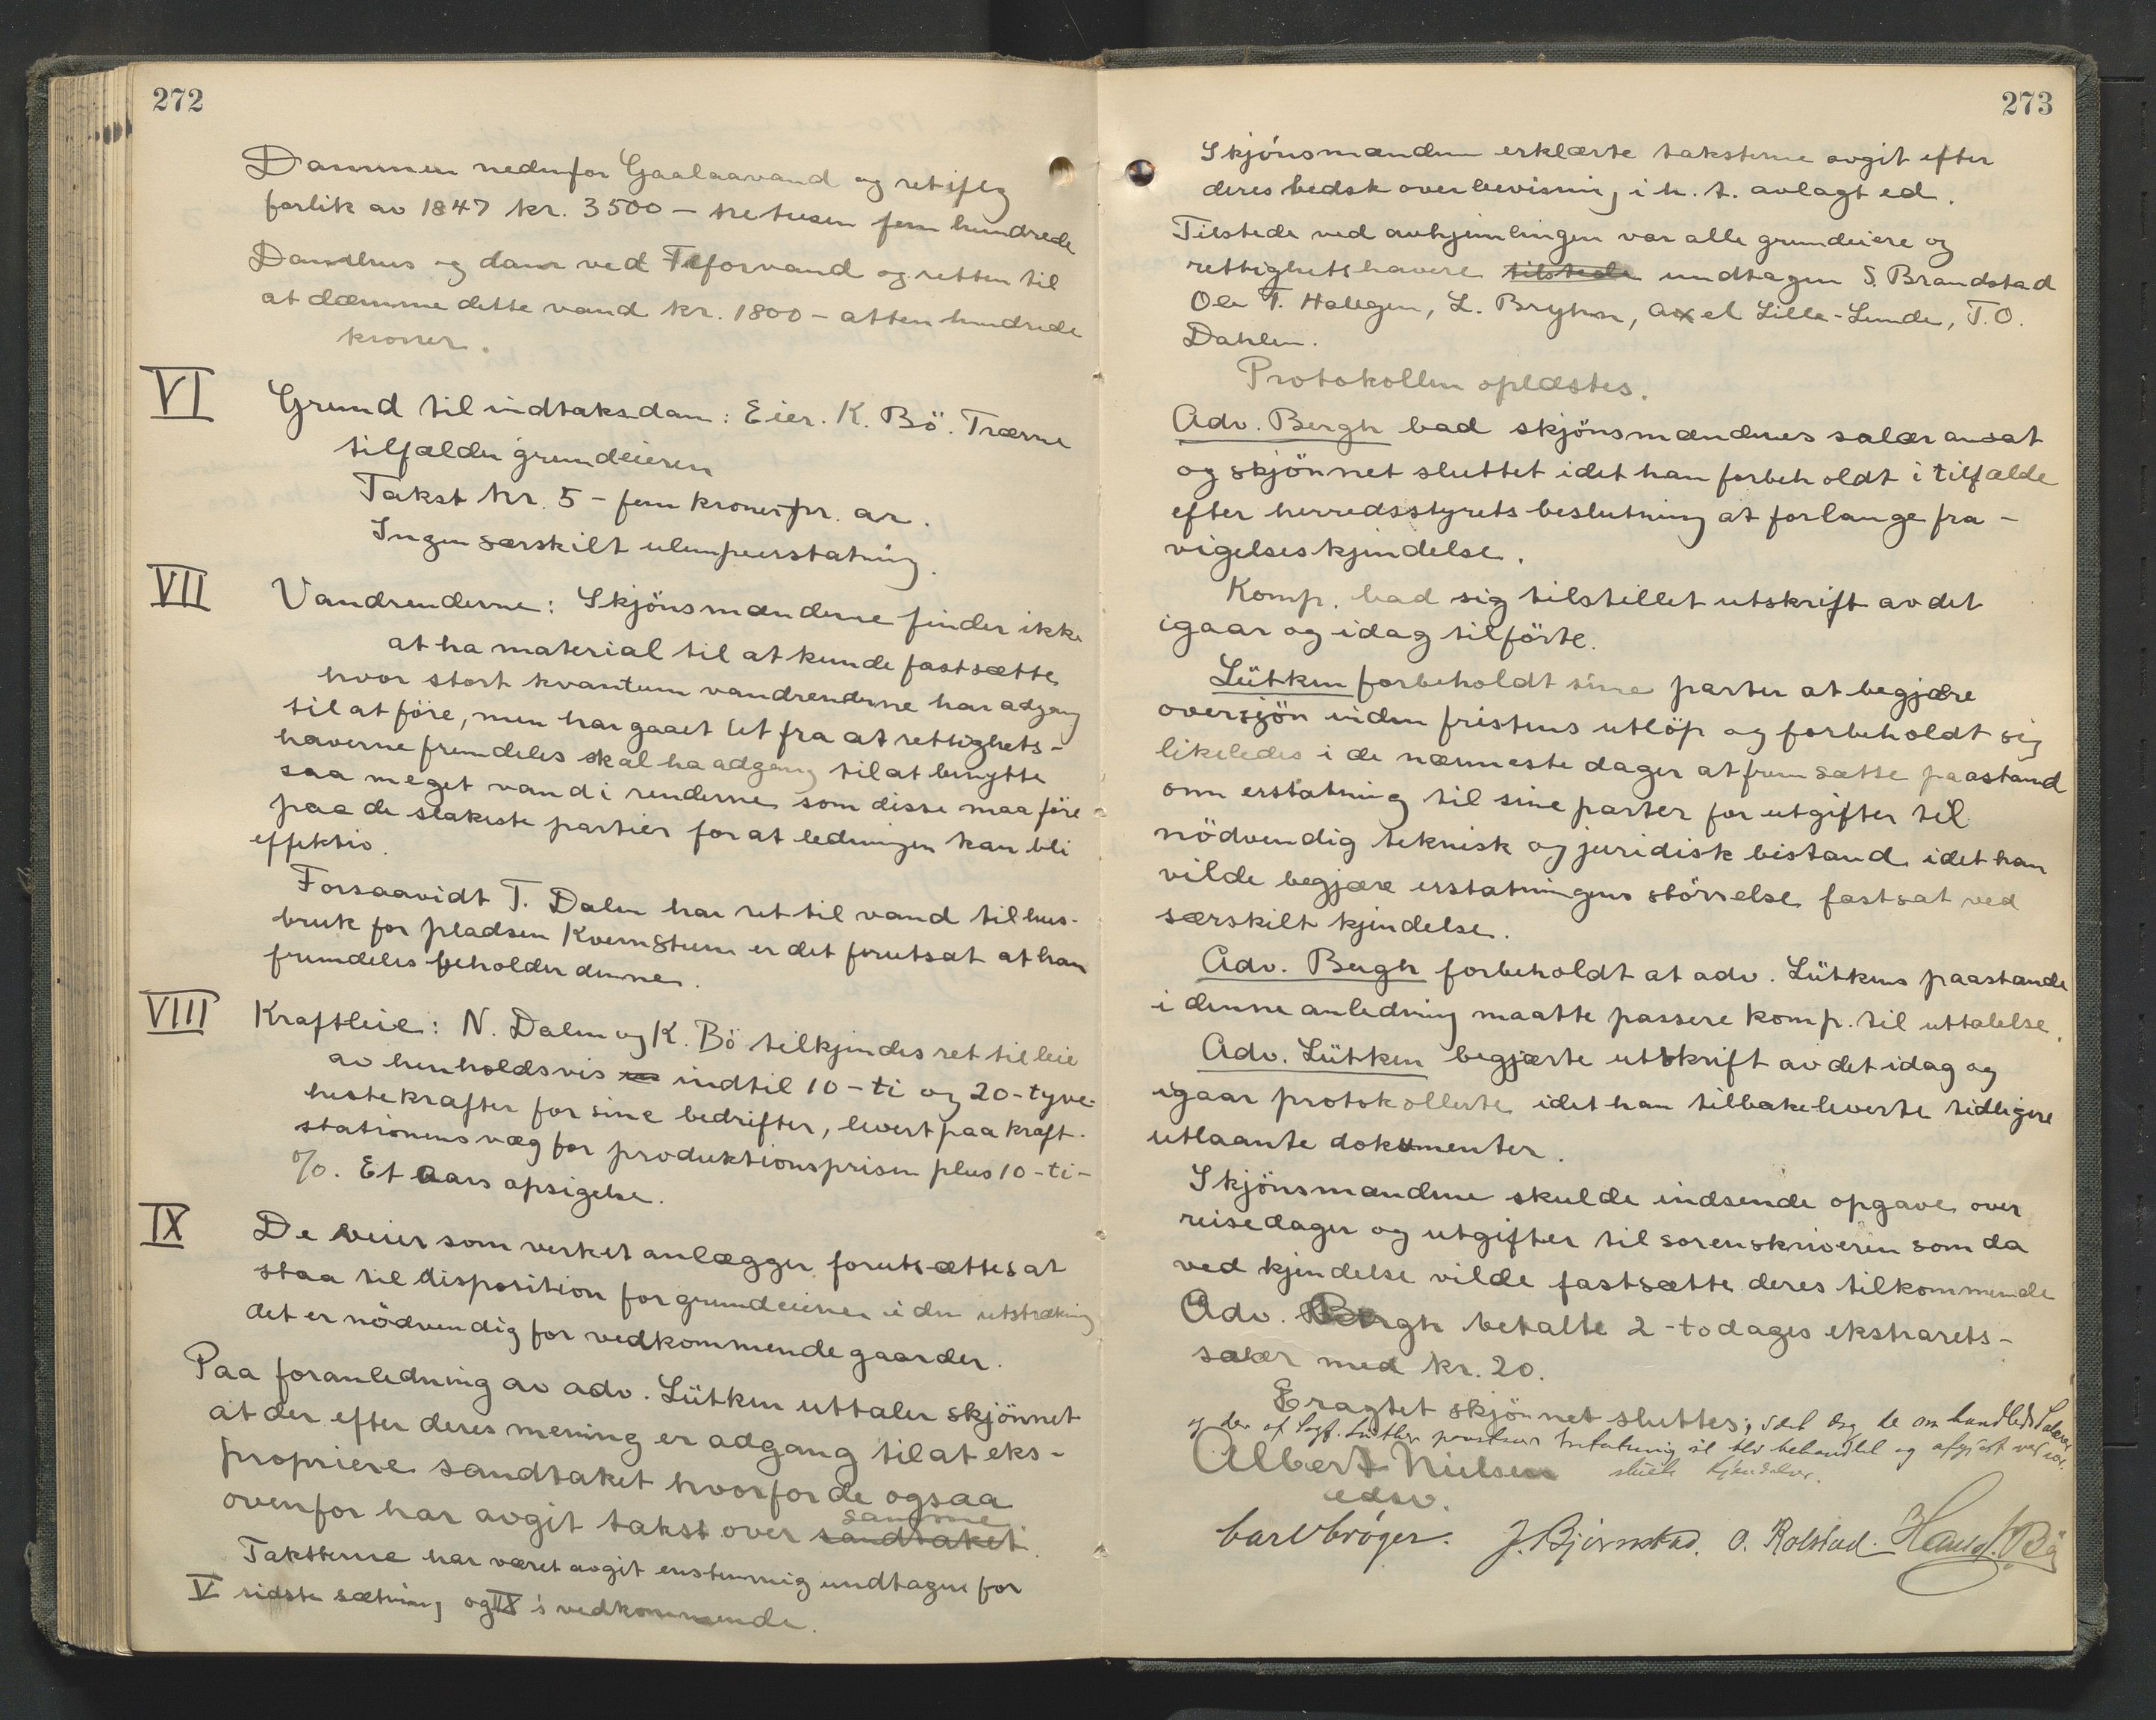 272
Dammen nedenfor Gaalaavand og ret iflg
forlik av 1847 kr. 3500 - tre tusen fem hundrede
Damhus og dam ved Fefforvand og retten til
at dæmme dette vand kr. 1800 - atten hundrede
kroner.
VI Grund til indtaksdam: Eier. K. Bö. Trærne
tilfalder grundeieren
Takst kr. 5 - fem kroner pr. ar.
Ingen særskilt ulempeerstatning.
VII Vandrenderne: Skjönsmænderne finder ikke
at ha material til at kunde fastsætte
hvor stort kvantum vandrenderne har adgang
til at före, men har gaaet ut fra at rettighets-
haverne fremdeles skal ha adgang til at benytte
saa meget vand i renderne som disse maa före
paa de slakeste partier for at ledningen kan bli
effektiv.
Forsaavidt T. Dalen har ret til vand til hus-
bruk for pladsen Kvernstuen er det forutsat at han
fremdeles beholder denne.
VIII Kraftleie: N. Dalen og K. Bö tilkjendes ret til leie
av henholdsvis indtil 10 - ti og 20 - tyve-
hestekrafter for sine bedrifter, levert paa kraft-
stationens væg for produktionsprisen plus 10 - ti -
%. Et aars opsigelse.
IX De veier som verket anlægger forutsættes at
staa til disposition for grundeierne i den utstrækning
det er nödvendig for vedkommende gaarder.
Paa foranledning av adv. Lütken uttaler skjönnet
at der efter deres mening er adgang til at eks-
propriere sandtaket hvorfor de ogsaa
samme
ovenfor har avgit takst over sandtaket.
Taksterne har været avgit enstemmig undtagen for
V sidste sætning og IX's vedkommende.
273
Skjönsmændene erklærte taksterne avgit efter
deres bedste overbevisning i h. t. avlagt ed.
Tilstede ved avhjemlingen var alle grundeiere og
rettighetshavere tilstede undtagen S. Brandstad
Ole T. Hallgen, L. Bryhn, Axel Lille-Lunde, T. O.
Dahlen.
Protokollen oplæstes.
Adv. Bergh bad skjönsmændenes salær ansat
og skjönnet sluttet idet han forbeholdt i tilfælde
efter herredsstyrets beslutning at forlange fra-
vigelseskjendelse.
Komp. bad sig tilstillet utskrift av det
igaar og idag tilförte.
Lütken forbeholdt sine parter at begjære
oversjön inden fristens utlöp og forbeholdt sig
likeledes i de nærmeste dager at fremsætte paastand
om erstatning til sine parter for utgifter til
nödvendig teknisk og juridisk bistand idet han
vilde begjære erstatningens störrelse fastsat ved
særskilt kjendelse.
Adv. Bergh forbeholdt at adv. Lütkens paastande
i denne anledning maatte passere komp. til uttalelse.
Adv. Lütken begjærte utskrift av det idag og
igaar protokollerte idet han tilbakeleverte tidligere
utlaante dokumenter.
Skjönsmændene skulde indsende opgave over
reisedager og utgifter til sorenskriveren som da
ved kjendelse vilde fastsætte deres tilkommende
Adv. Bergh betalte 2 - to dages ekstrarets-
salær med kr. 20.
Eragtet skjönnet sluttes; idet dog de omhandlede Salærer
og der af Sagf. Lütken erstatning vil blir behandlet og afgjort ved sær-
skilte Kjendelser.
Albert Nielsen
edsv.
Carl Cröger. J. Bjørnstad. O. Rolstad. Hans J. Bö